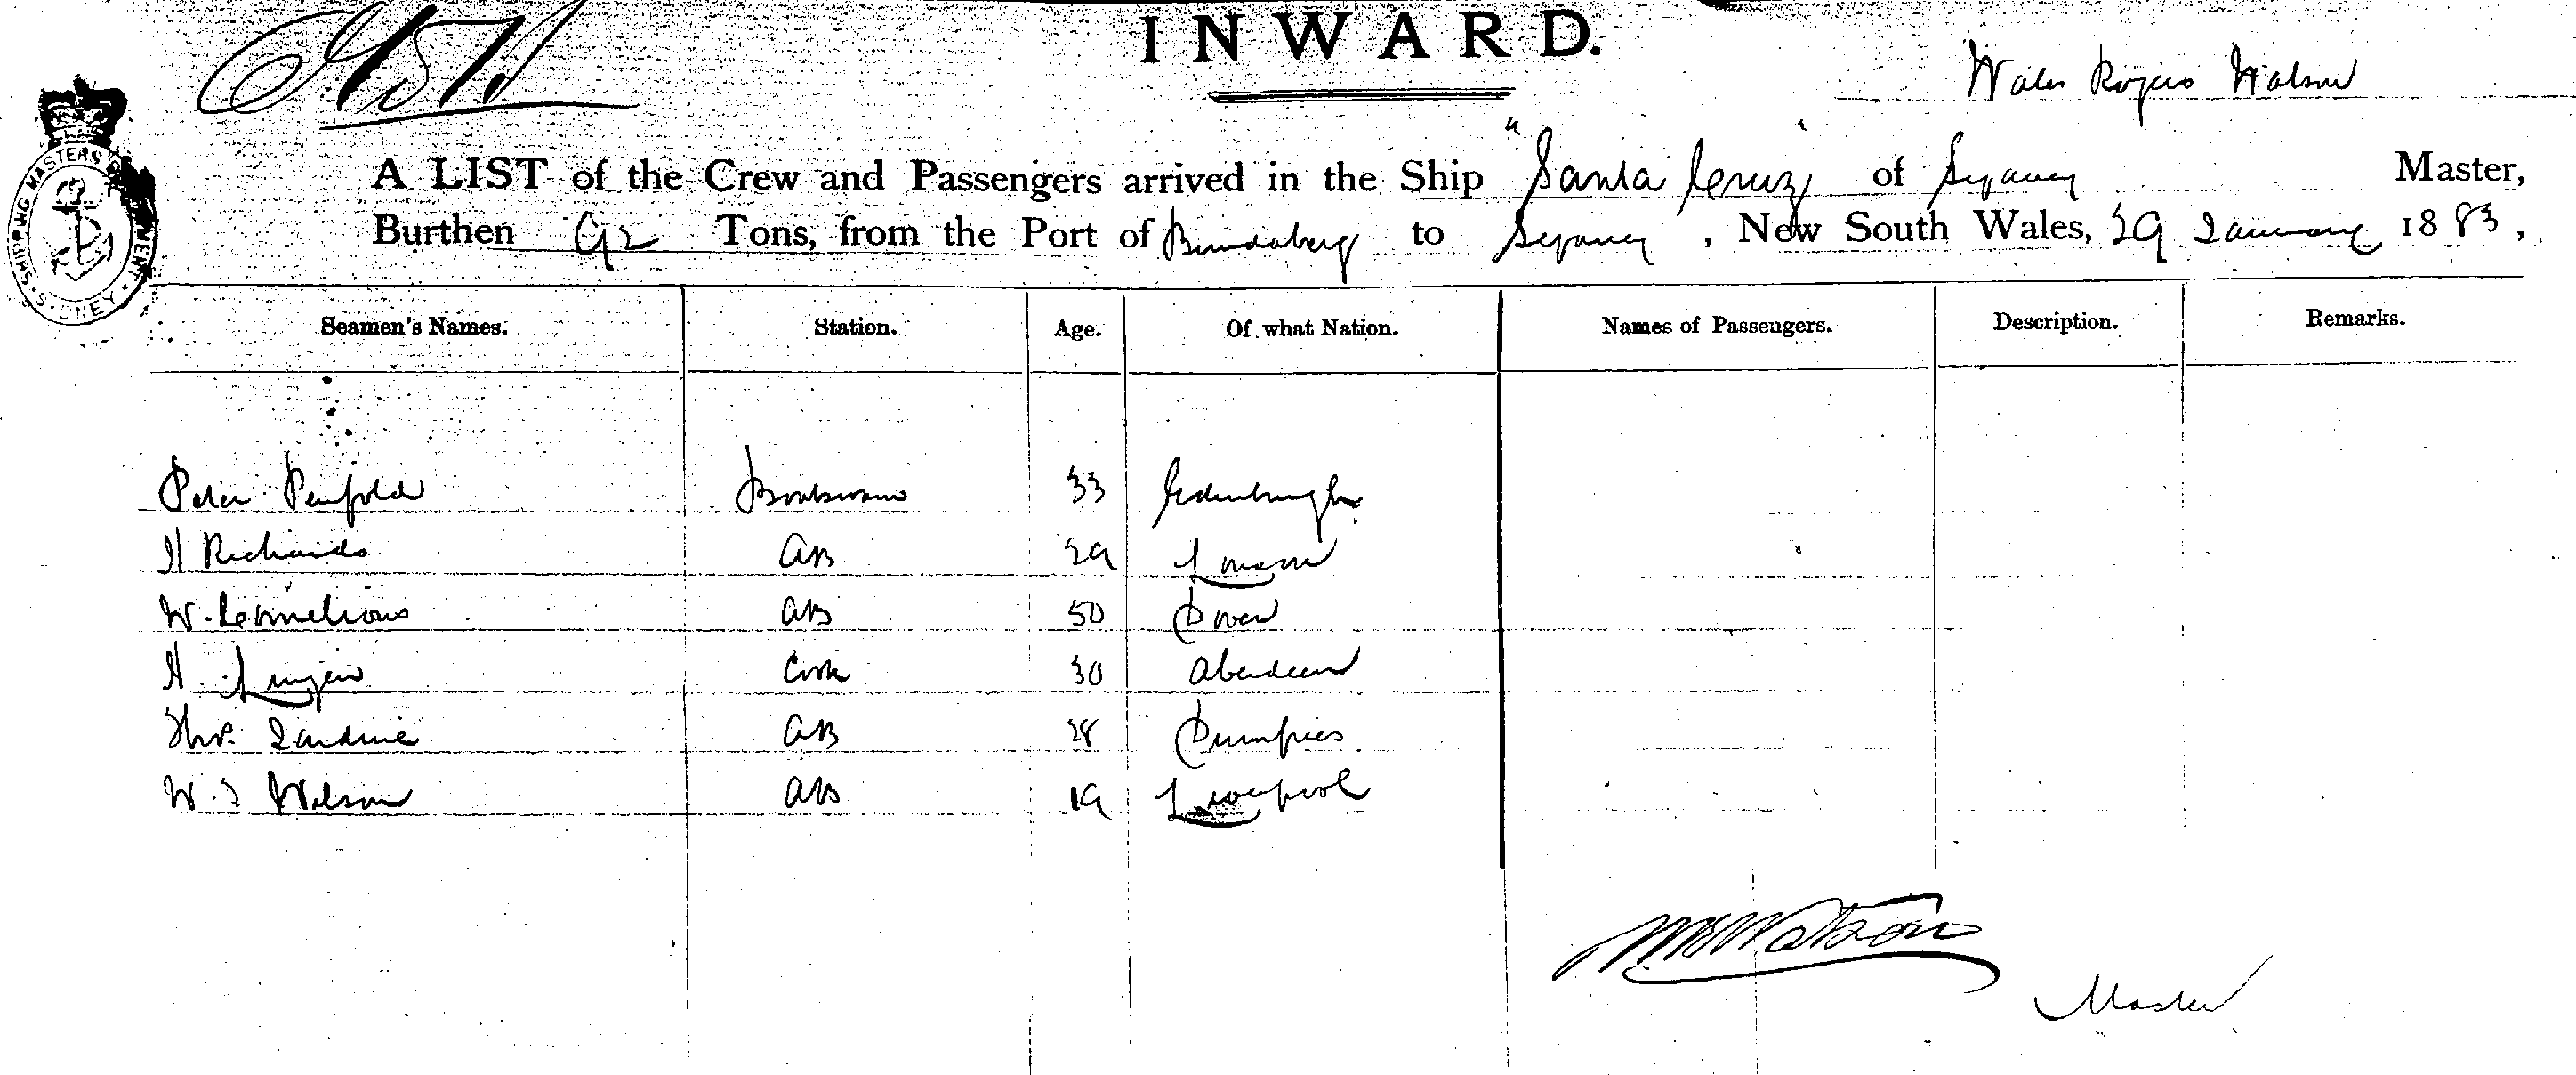 INWARD.
Walter Rogers Watson
A LIST of the Crew and Passengers arrived in the Ship "Santa Cruz" of Sydney Master,
Burthen 92 Tons, from the Port of Bundaberg to Sydney, New South Wales, 29 January 1883,
SHIPPING MASTERS SYDNEY
Seamen's Names. Station. Age. Of what Nation. Names of Passengers. Description. Remarks.
Peter Penfold Boatswain 33 Edinburgh
H Richards AB 29 London
W. Cornelious AB 50 Dover
H. Cook 30 Aberdeen
Thos. Jardine AB 28 Dumfries
W. J Wilson AB 19 Liverpool
WRWatson
Master